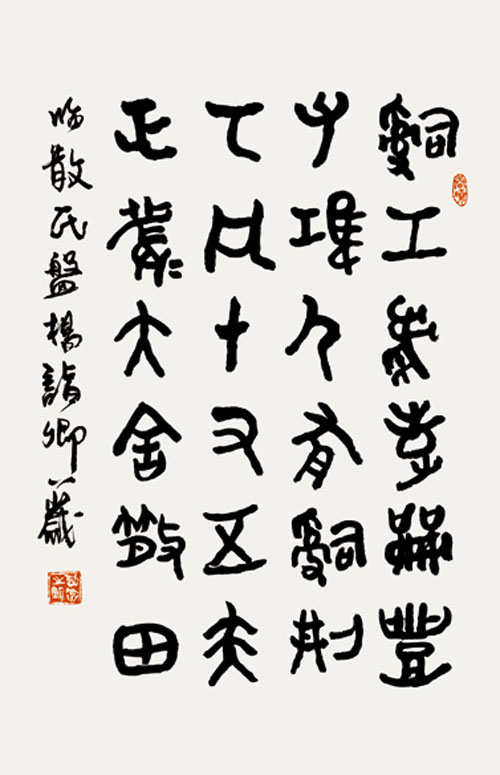 𤔲工虎孝龠豐
父𨾊人有𤔲刑
丂凡十又五夫
正履夨舍散田
临散氏盤楊詣卿八歲